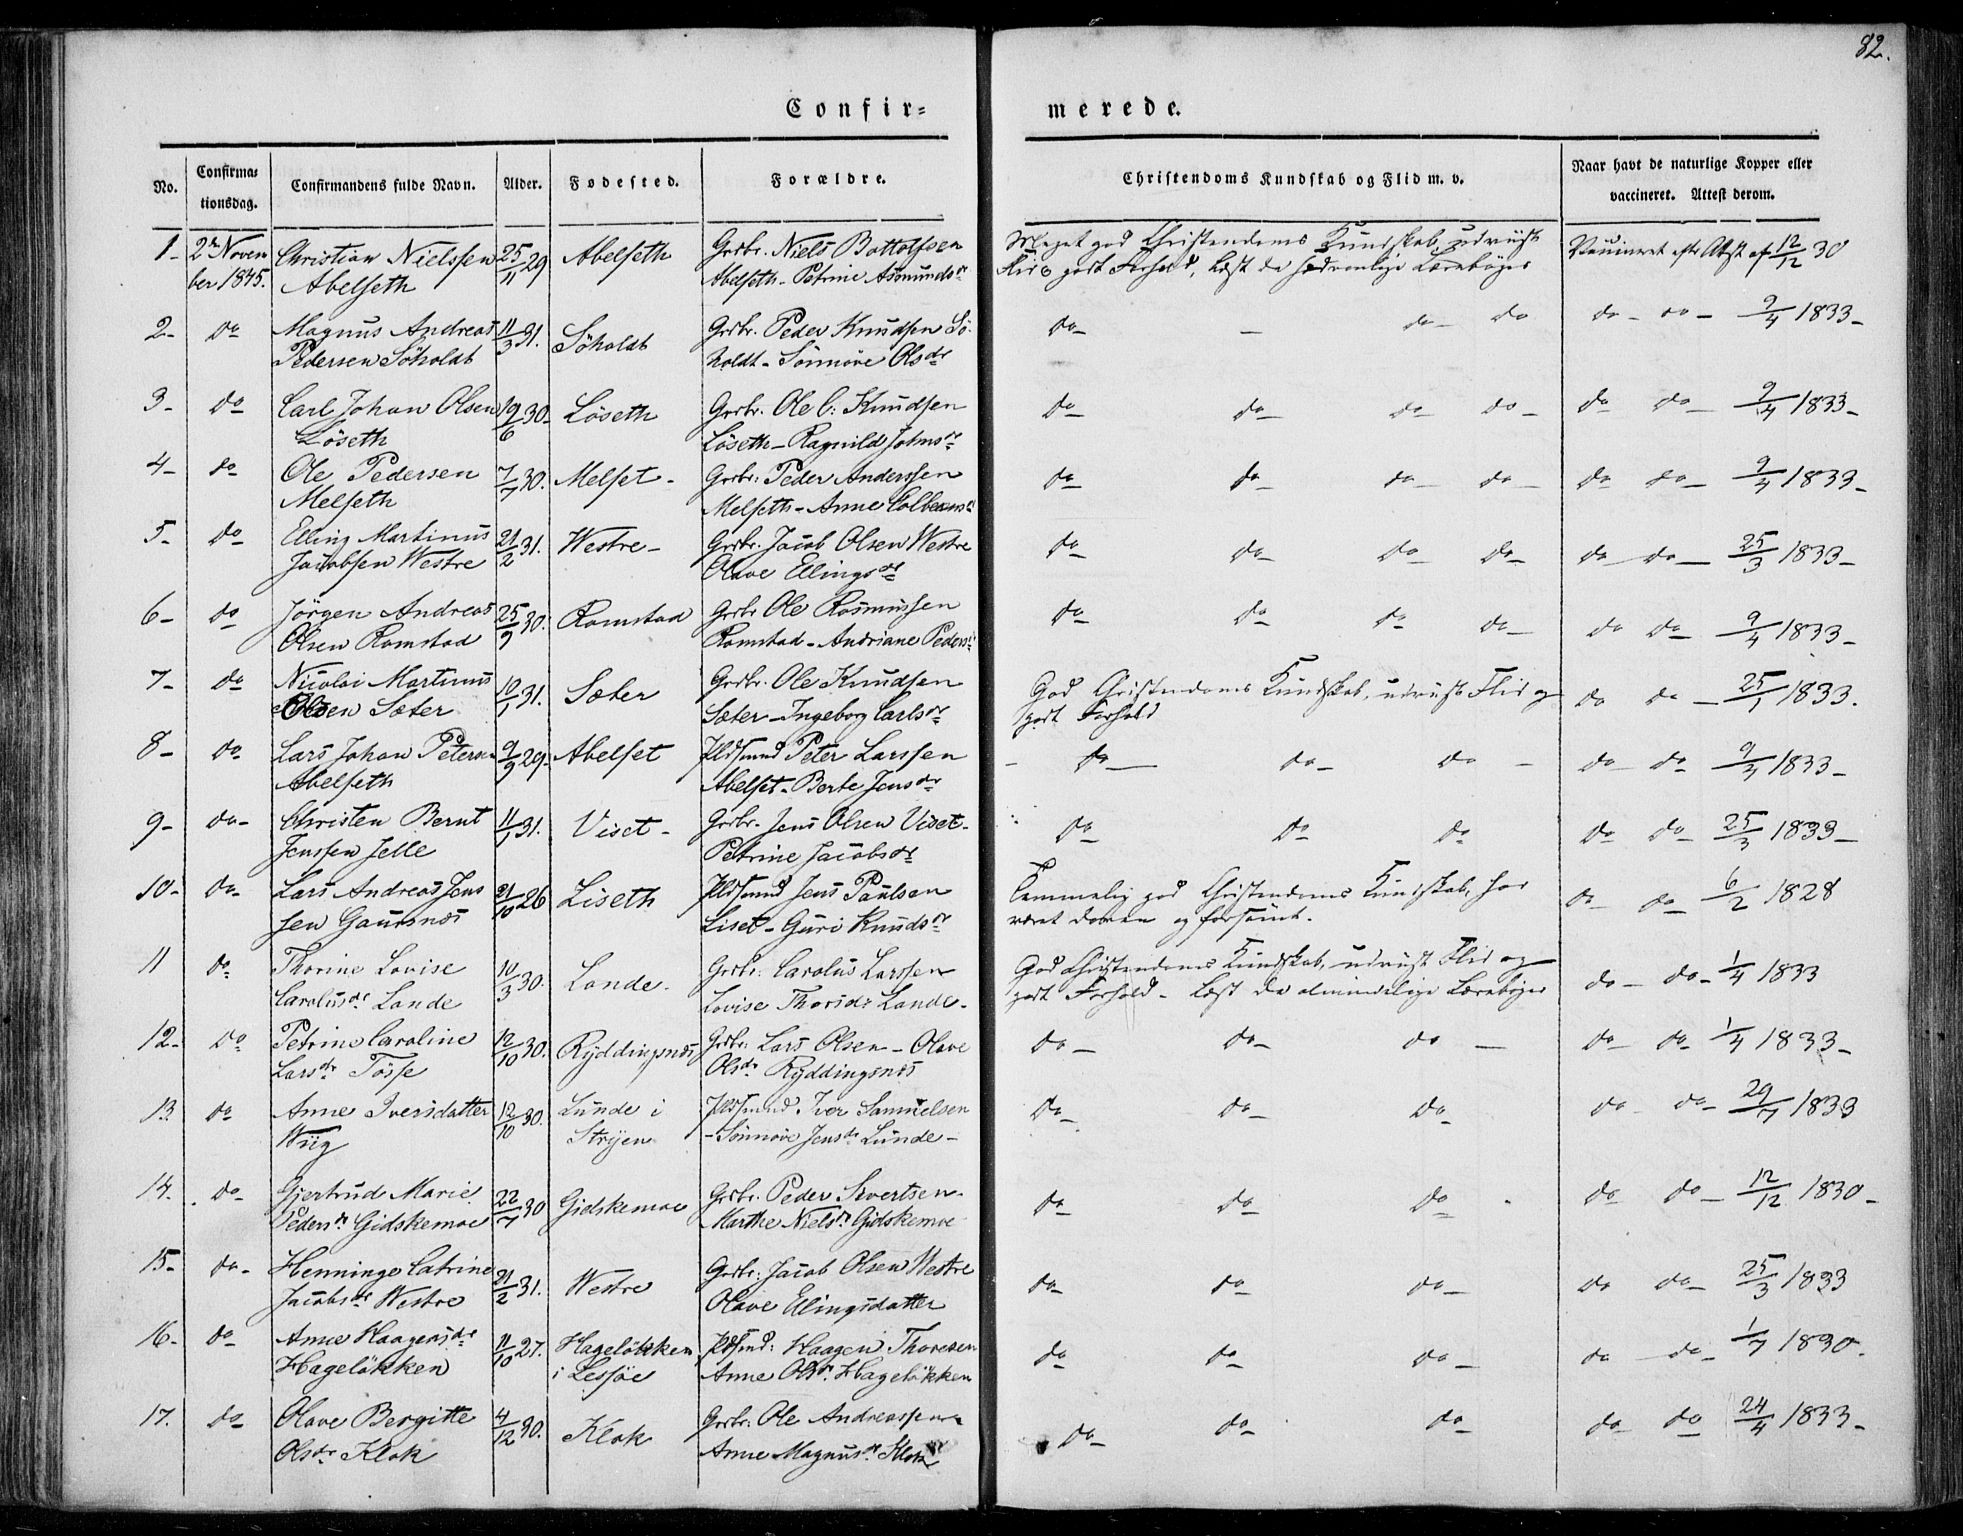 82.
Confir=
merede.
No.
Confirma=
tionsdag.
Confirmandens fulde Navn.
Alder.
Fødested.
Forældre.
Christendoms Kundskab og Flid m. v.
Naar havt de naturlige Kopper eller
vaccineret. Attest derom.
1- 2n Novem Christian Nielssen 25/11 29 Abelseth Grdbr. Niels Bottolfsen Meget god Christendoms Kundskab, udviist Vaccineret efter Attest af 12/12 30
ber 1845. Abelseth Abelseth - Petrine Asmundsdr Flid & godt Forhold, læst de sædvanlige Lærebøger
2- do Magnus Andreas 11/3 31. Söholdt Grdbr. Peder Knudsen Sö- do - do do do - do - 9/4 1833-
Pedersen Söholdt holdt - Sönnöve Olsdr
3- do Carl Johan Olsen 19/6 30- Löseth Grdbr. Ole C: Knudsen do do do do - do do 9/4 1833-
Löseth Löseth - Ragnild Johnsdr
4- do Ole Pedersen 7/7 30. Melset- Grdbr: Peder Anderssen do do do do - do do 9/4 1833-
Melseth Melseth - Anne
5- do Elling Martinus 21/2 31. Westre- Grdbr. Jacob Olsen Westre do do do do do do 25/3 1833-
Jacobsen Westre Olave Ellingsdr
6- do Jörgen Andreas 25/9 30. Romstad Grdbr Ole Rasmussen do do do do do do 9/4 1833-
Olsen Romstad Romstad - Andriane Pedersdr
7- do Nicolai Martinus 10/1 31. Sæter Grdbr. Ole Knudsen God Christendoms Kundskab, udviist Flid og do do - 25/1 1833.
Olsen Sæter Sæter - Ingeborg Carlsdr godt Forhold
8- do Lars Johan Petersen 9/9 29- Abelset Huusmand Peter Larssen - do do do - do do 9/3 1833-
Abelseth Abelset - Berte Jensdr
9- do- Christen Bernt 11/1 31. Viset- Grdbr. Jens Olsen Viset- do do do do do 25/3 1833-
Jenssen Jelle Petrine Jacobsdr
10- do- Lars Andreas Jens 21/10 26 Liseth Huusmand Jens Paulsen Temmelig god Christendoms Kundskab, har do do 6/2 1828
sen Gausnæs Liset - Guri Knudsdr været doven og forsømt.
11 do- Thorine Lovise 10/3 30. Lande. Grdbr. Carolus Larssen God Christendoms Kundskab, udviist Flid og do do 1/4 1833
Carolusdr Lande Lovise Thorsdr Lande- godt Forhold - Læst de almindelige Lærebøger
12- do Petrine Caroline 12/10 30. Ryddingsnæs Grdbr. Lars Olsen - Olave do do do do do 1/4 1833-
Larsdr Tosse Olsdr Ryddingsnæs
13. do Anne Iversdatter 12/10 30. Lunde i Huusmand Iver Samuelsen do do do do do 29/7 1833
Wiig Stryen - Sönnöve Jensdr Lunde-
14. do- Gjertrud Marie 22/7 30 Gidskemoe Grdbr. Peder Sivertsen- do do do do do 12/12 1830-
Pedersdr Gidskemoe Marthe Nielsdr Gidskemoe
15- do- Henninge Catrine 21/2 31. Westre Grdbr: Jacob Olsen Westre do do do do do 25/3 1833
Jacobsdr Westre Olave Elingsdatter
16- do Anne Haagensdr 11/10 27. Hagelökken Huusmd: Haagen Thoresen do do do do do 1/7 1830.
Hagelökken i Lessöe Anne Olsdr. Hagelökken
17. do Olave Bergitte 4/12 30. Klok Grdbr: Ole Andreassen do do do do do 24/4 1833-
Olsdr Klok Anne Magnusdr Klok